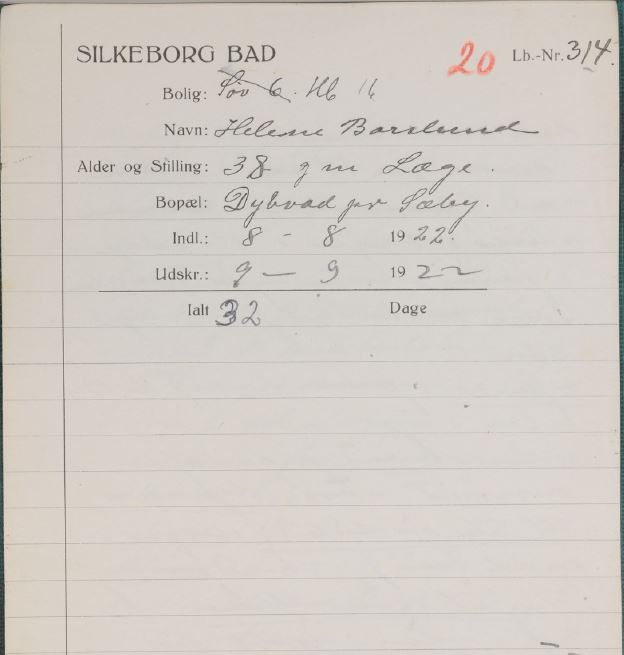 SILKEBORG BAD 20 Lb.-Nr. 314.
Bolig: Søv 6. Hb 16
Navn: Helene Barslund
Alder og Stilling: 38 gm Læge.
Bopæl: Dybvad pr Sæby.
Indl.: 8 - 8 1922.
Udskr.: 9 — 9 1922
Ialt 32 Dage